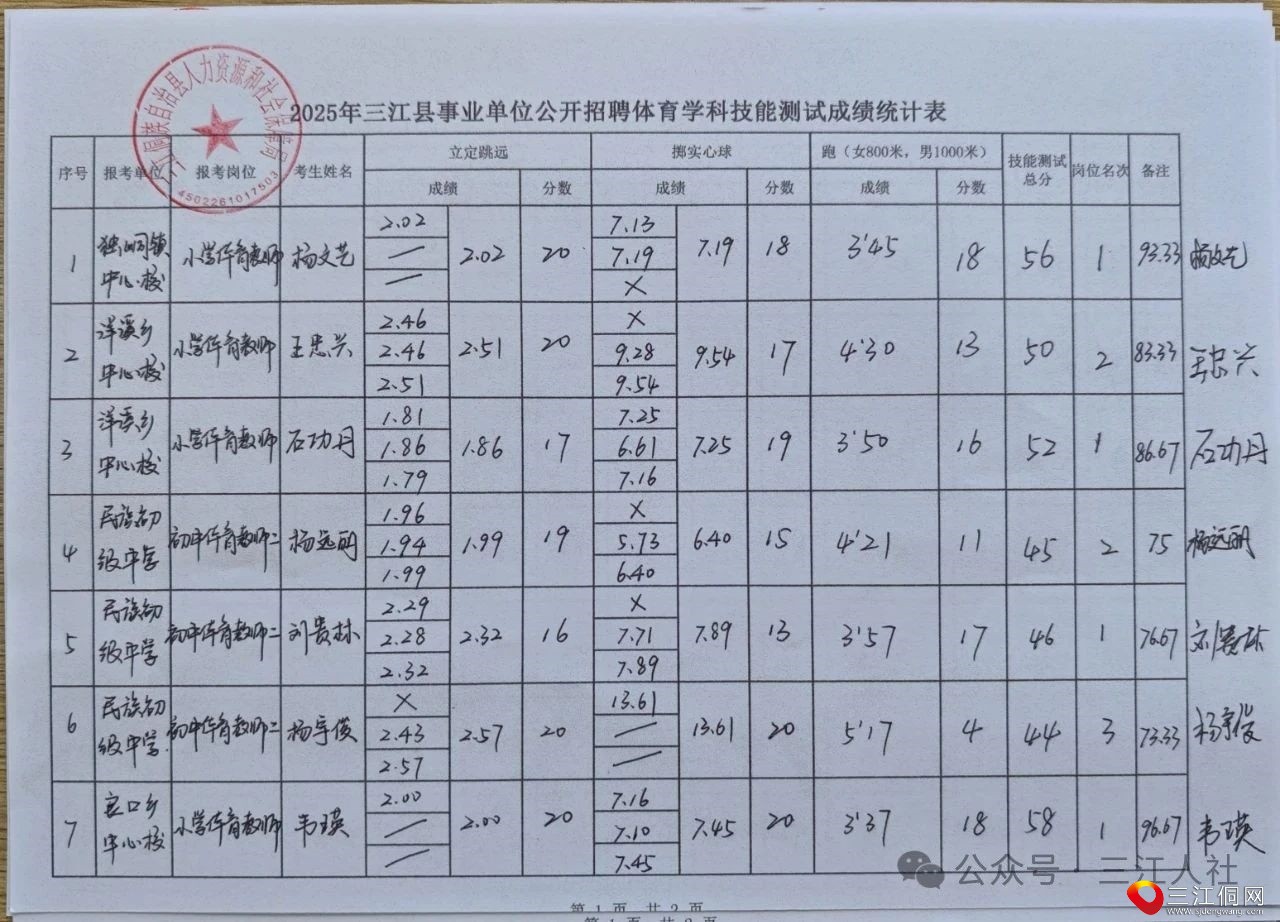 2025年三江县事业单位公开招聘体育学科技能测试成绩统计表
族自治县人力资源和社会保障局
4502261017503
序号 报考单位 报考岗位 考生姓名 立定跳远 掷实心球 跑（女800米，男1000米） 技能测试总分 岗位名次 备注
成绩 分数 成绩 分数 成绩 分数
1 独峒镇中心校 小学体育教师 杨文艺 2.02 / / 2.02 20 7.13 7.19 X 7.19 18 3'45 18 56 1 93.33 杨文艺
2 洋溪乡中心校 小学体育教师 王忠兴 2.46 2.46 2.51 2.51 20 X 9.28 9.54 9.54 17 4'30 13 50 2 83.33 王忠兴
3 洋溪乡中心校 小学体育教师 石功丹 1.81 1.86 1.79 1.86 17 7.25 6.61 7.16 7.25 19 3'50 16 52 1 86.67 石功丹
4 民族初级中学 初中体育教师二 杨远丽 1.96 1.94 1.99 1.99 19 X 5.73 6.40 6.40 15 4'21 11 45 2 75 杨远丽
5 民族初级中学 初中体育教师二 刘贵林 2.29 2.28 2.32 2.32 16 X 7.71 7.89 7.89 13 3'57 17 46 1 76.67 刘贵林
6 民族初级中学 初中体育教师二 杨宇俊 X 2.43 2.57 2.57 20 13.61 / / 13.61 20 5'17 4 44 3 73.33 杨宇俊
7 良口乡中心校 小学体育教师 韦瑛 2.00 / / 2.00 20 7.16 7.10 7.45 7.45 20 3'37 18 58 1 96.67 韦瑛
公众号 三江人社
第 1 页，共 2 页
三江侗网
www.sjdongwang.com